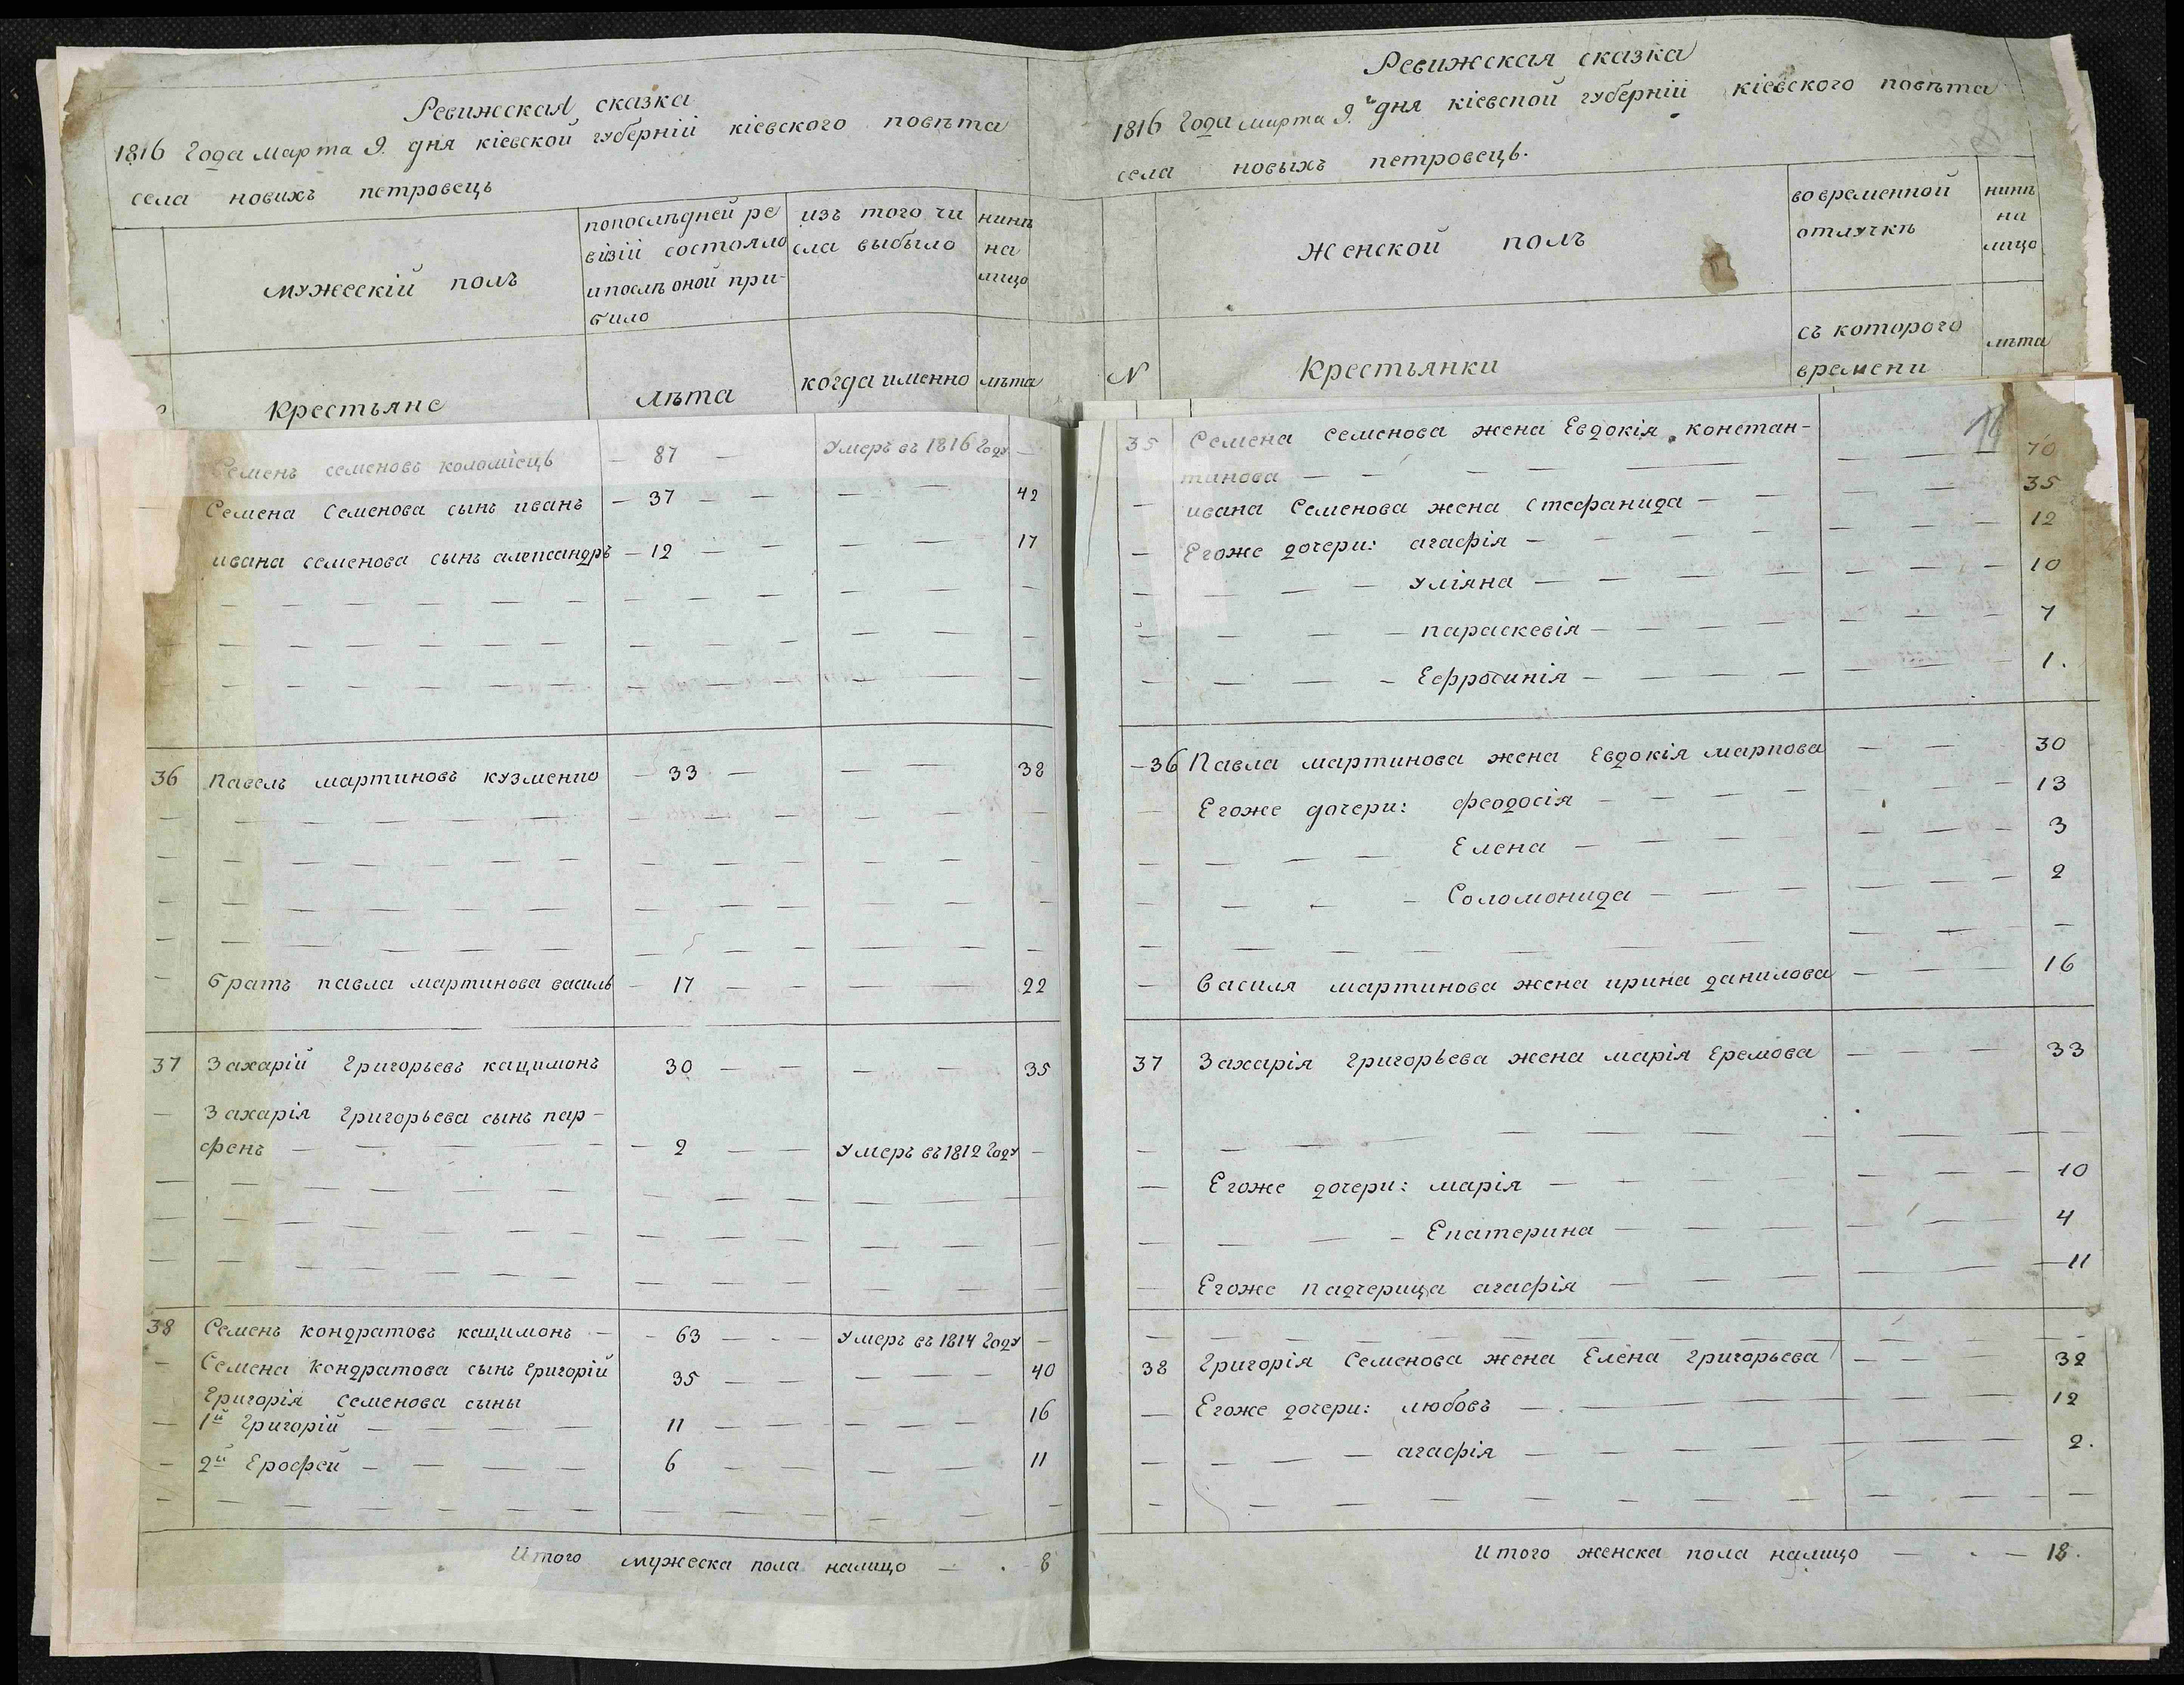 Ревижская сказка
1816 Года марта 9. дня кіевской губерніи кіевского повѣта
села новихъ петровець
мужескій полъ
попослѣдней ре
візіи состояло
ипослѣ оной при-
било
изъ того чи
сла выбыло
нинѣ
на
лицо
Крестьяне
лѣта
когда именно
лѣта
Семенъ семеновъ коломіець — 87 — Умеръ въ 1816 Году —
Семена Семенова сынъ иванъ — 37 — — — — 42
ивана семенова сынъ александръ — 12 — — — — 17
36 Павелъ мартиновъ кузменко — 33 — — — 38
— братъ павла мартинова василь — 17 — — — — 22
37 Захарій Григорьевъ кацимонъ 30 — — — — 35
— Захарія Григорьева сынъ пар-
фенъ — — — — — 2 — — Умеръ въ 1812 Году —
38 Семенъ кондратовъ кацимонъ — 63 — — — Умеръ въ 1814 Году —
— Семена Кондратова сынъ Григорій 35 — — — — — 40
Григорія Семенова сыны
— 1й Григорій — — — — 11 — — — — — 16
— 2й Ерофей — — — — 6 — — — — 11
Итого мужеска пола налицо — . - 8
Ревижская сказка
1816 Года марта 9.ъ дня кіевской губерніи кіевского повѣта
села новыхъ петровець.
женской полъ
во временной
отлучкѣ
нинѣ
на
лицо
N
Крестьянки
съ которого
времени
лѣта
35 Семена семенова жена Евдокія констан-
тинова — — — — — — — 70
— ивана Семенова жена Стефанида — — — — 35
— Егоже дочери: агафія — — — — — 12
— — — — Уліяна — — — — — 10
— — — — параскевія — — — — — 7
— — — — Ефросинія — — — — — 1.
-36 Павла мартинова жена Евдокія маркова — — 30
— Егоже дочери: феодосія — — — — 13
— — — — Елена — — — — 3
— — — — Соломонида — — — — 2
— Василя мартинова жена ирина данилова — — — 16
37 Захарія Григорьева жена марія Еремова — — — 33
— Егоже дочери: марія — — — — — 10
— — — — Екатерина — — — — — 4
— Егоже падчерица агафія — — — — — 11
38 Григорія Семенова жена Елена Григорьева — — — 32
— Егоже дочери: любовь — — — — — 12
— — — — агафія — — — — — 2.
Итого женска пола налицо — . — 18.